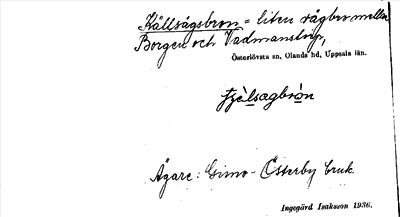 Källsågsbron = liten vägbro mellan
Borgen och Vadmanstorp,
Österlövsta sn, Olands hd, Uppsala län.
Ägare: Gimo-Österby bruk.
Ingegärd Isaksson 1936.